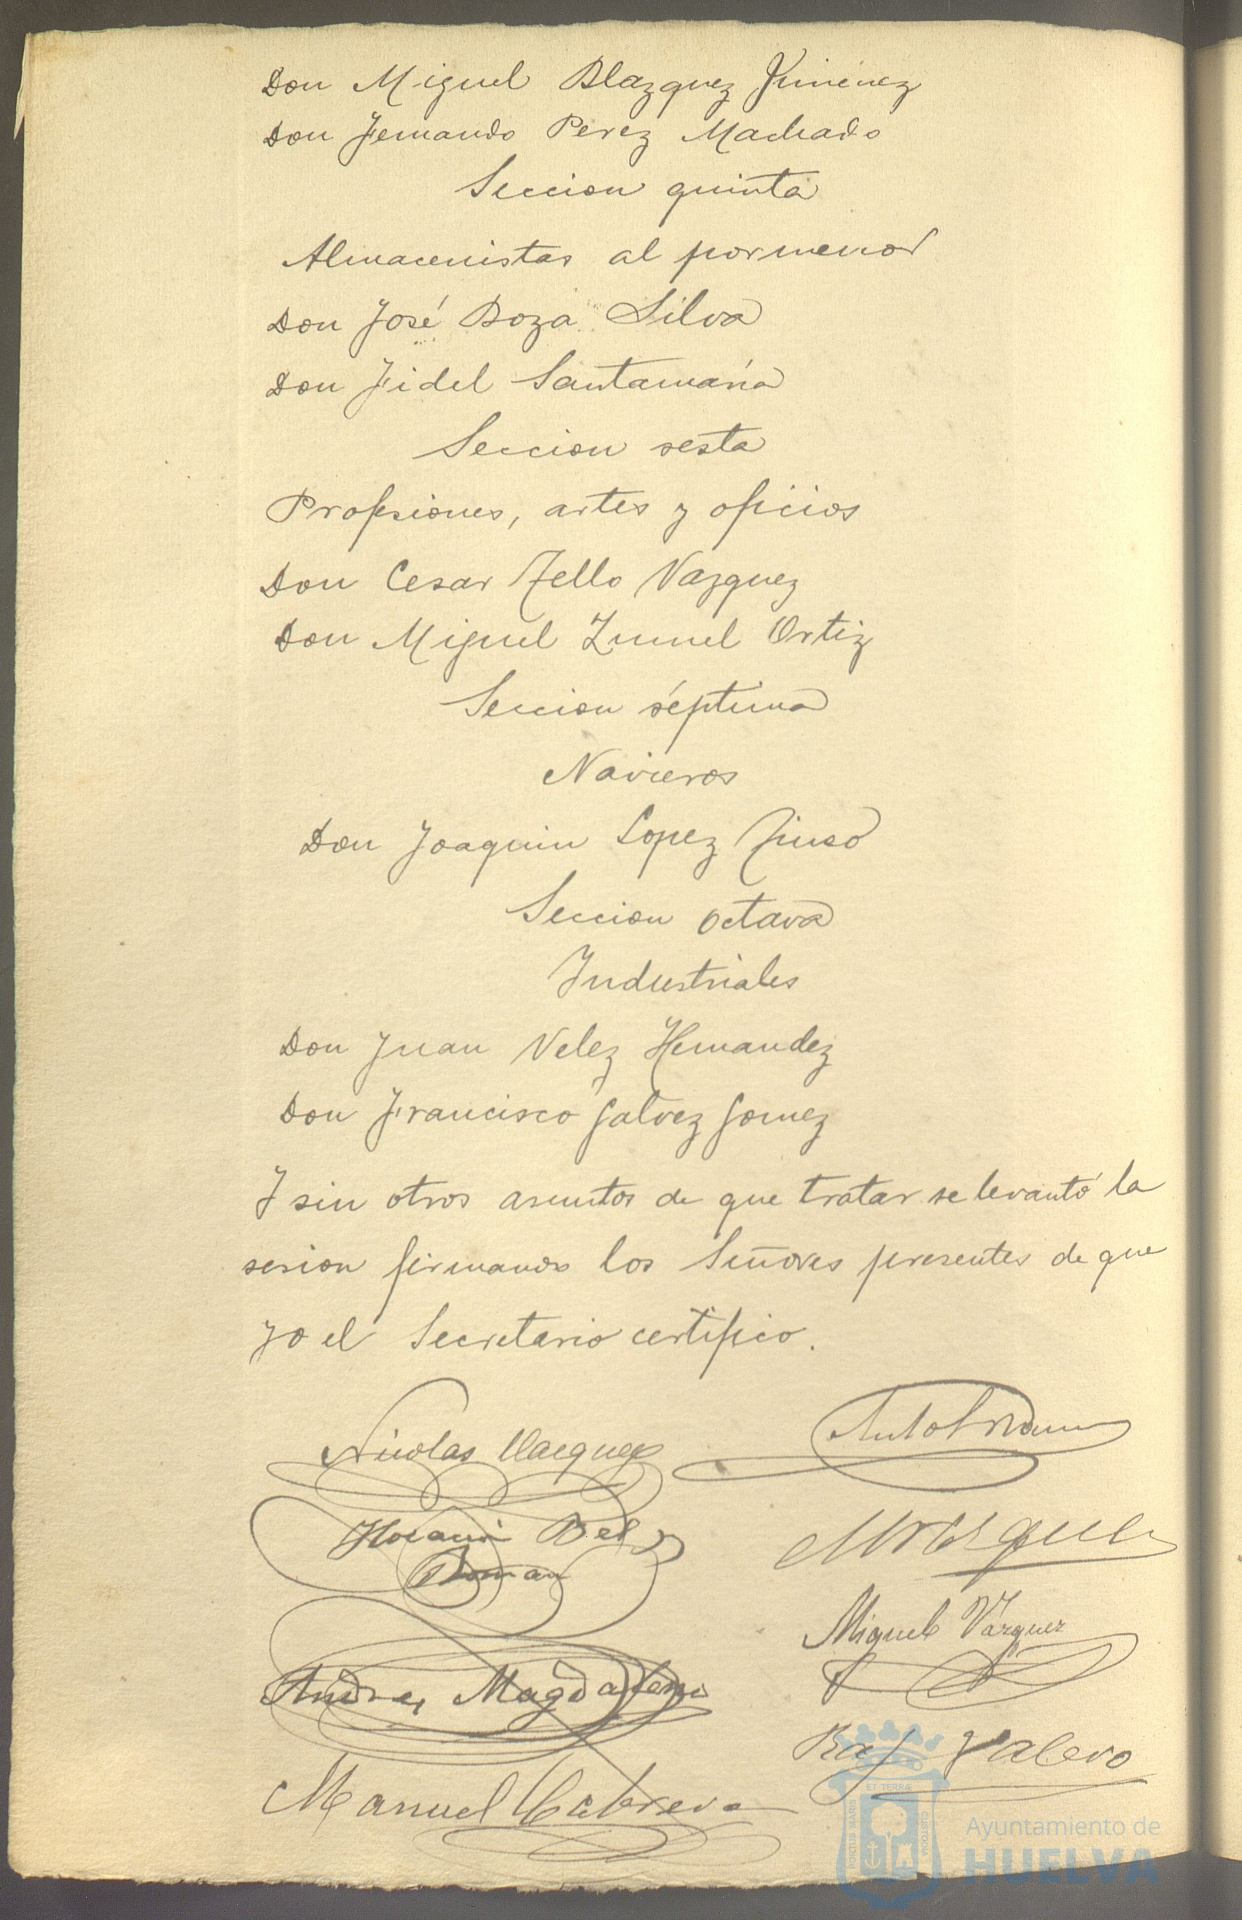 Don Miguel Blazquez Jimenez
Don Fernando Perez Machado
Seccion quinta
Almacenistas al por menor
Don José Boza Silva
Don Fidel Santamaría
Seccion sesta
Profesiones, artes y oficios
Don Cesar Tello Vazquez
Don Miguel Zunnel Ortiz
Seccion séptima
Navieros
Don Joaquin Lopez
Seccion octava
Industriales
Don Juan Velez Hernandez
Don Francisco Galvez Gomez
Y sin otros asuntos de que tratar se levantó la
sesion firmando los Señores presentes de que
yo el Secretario certifico.
Nicolas Vazquez
Horacio Bel
Roman
Miguel Vázquez
Andres Magdaleno
Raf Valero
Manuel Cabrera
PORTUS MARIS
ET TERRÆ
CUSTODIA
Ayuntamiento de
HUELVA